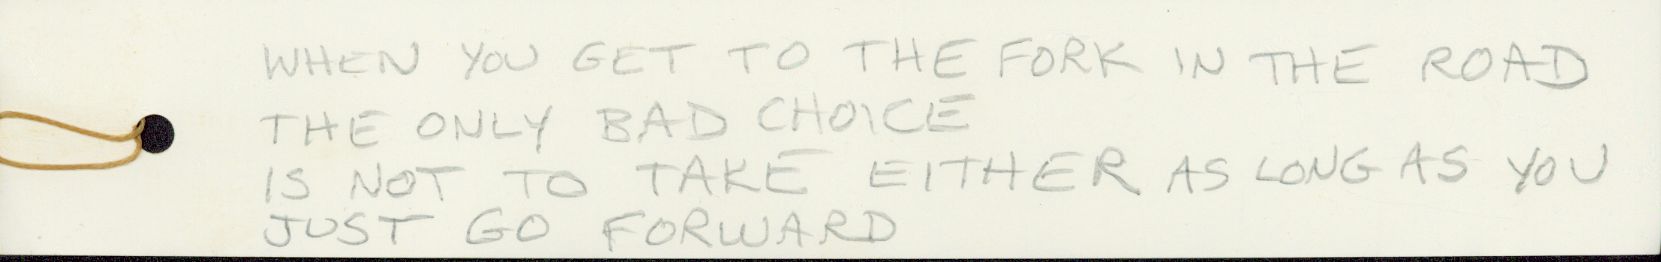 WHEN YOU GET TO THE FORK IN THE ROAD
THE ONLY BAD CHOICE
IS NOT TO TAKE EITHER AS LONG AS YOU
JUST GO FORWARD